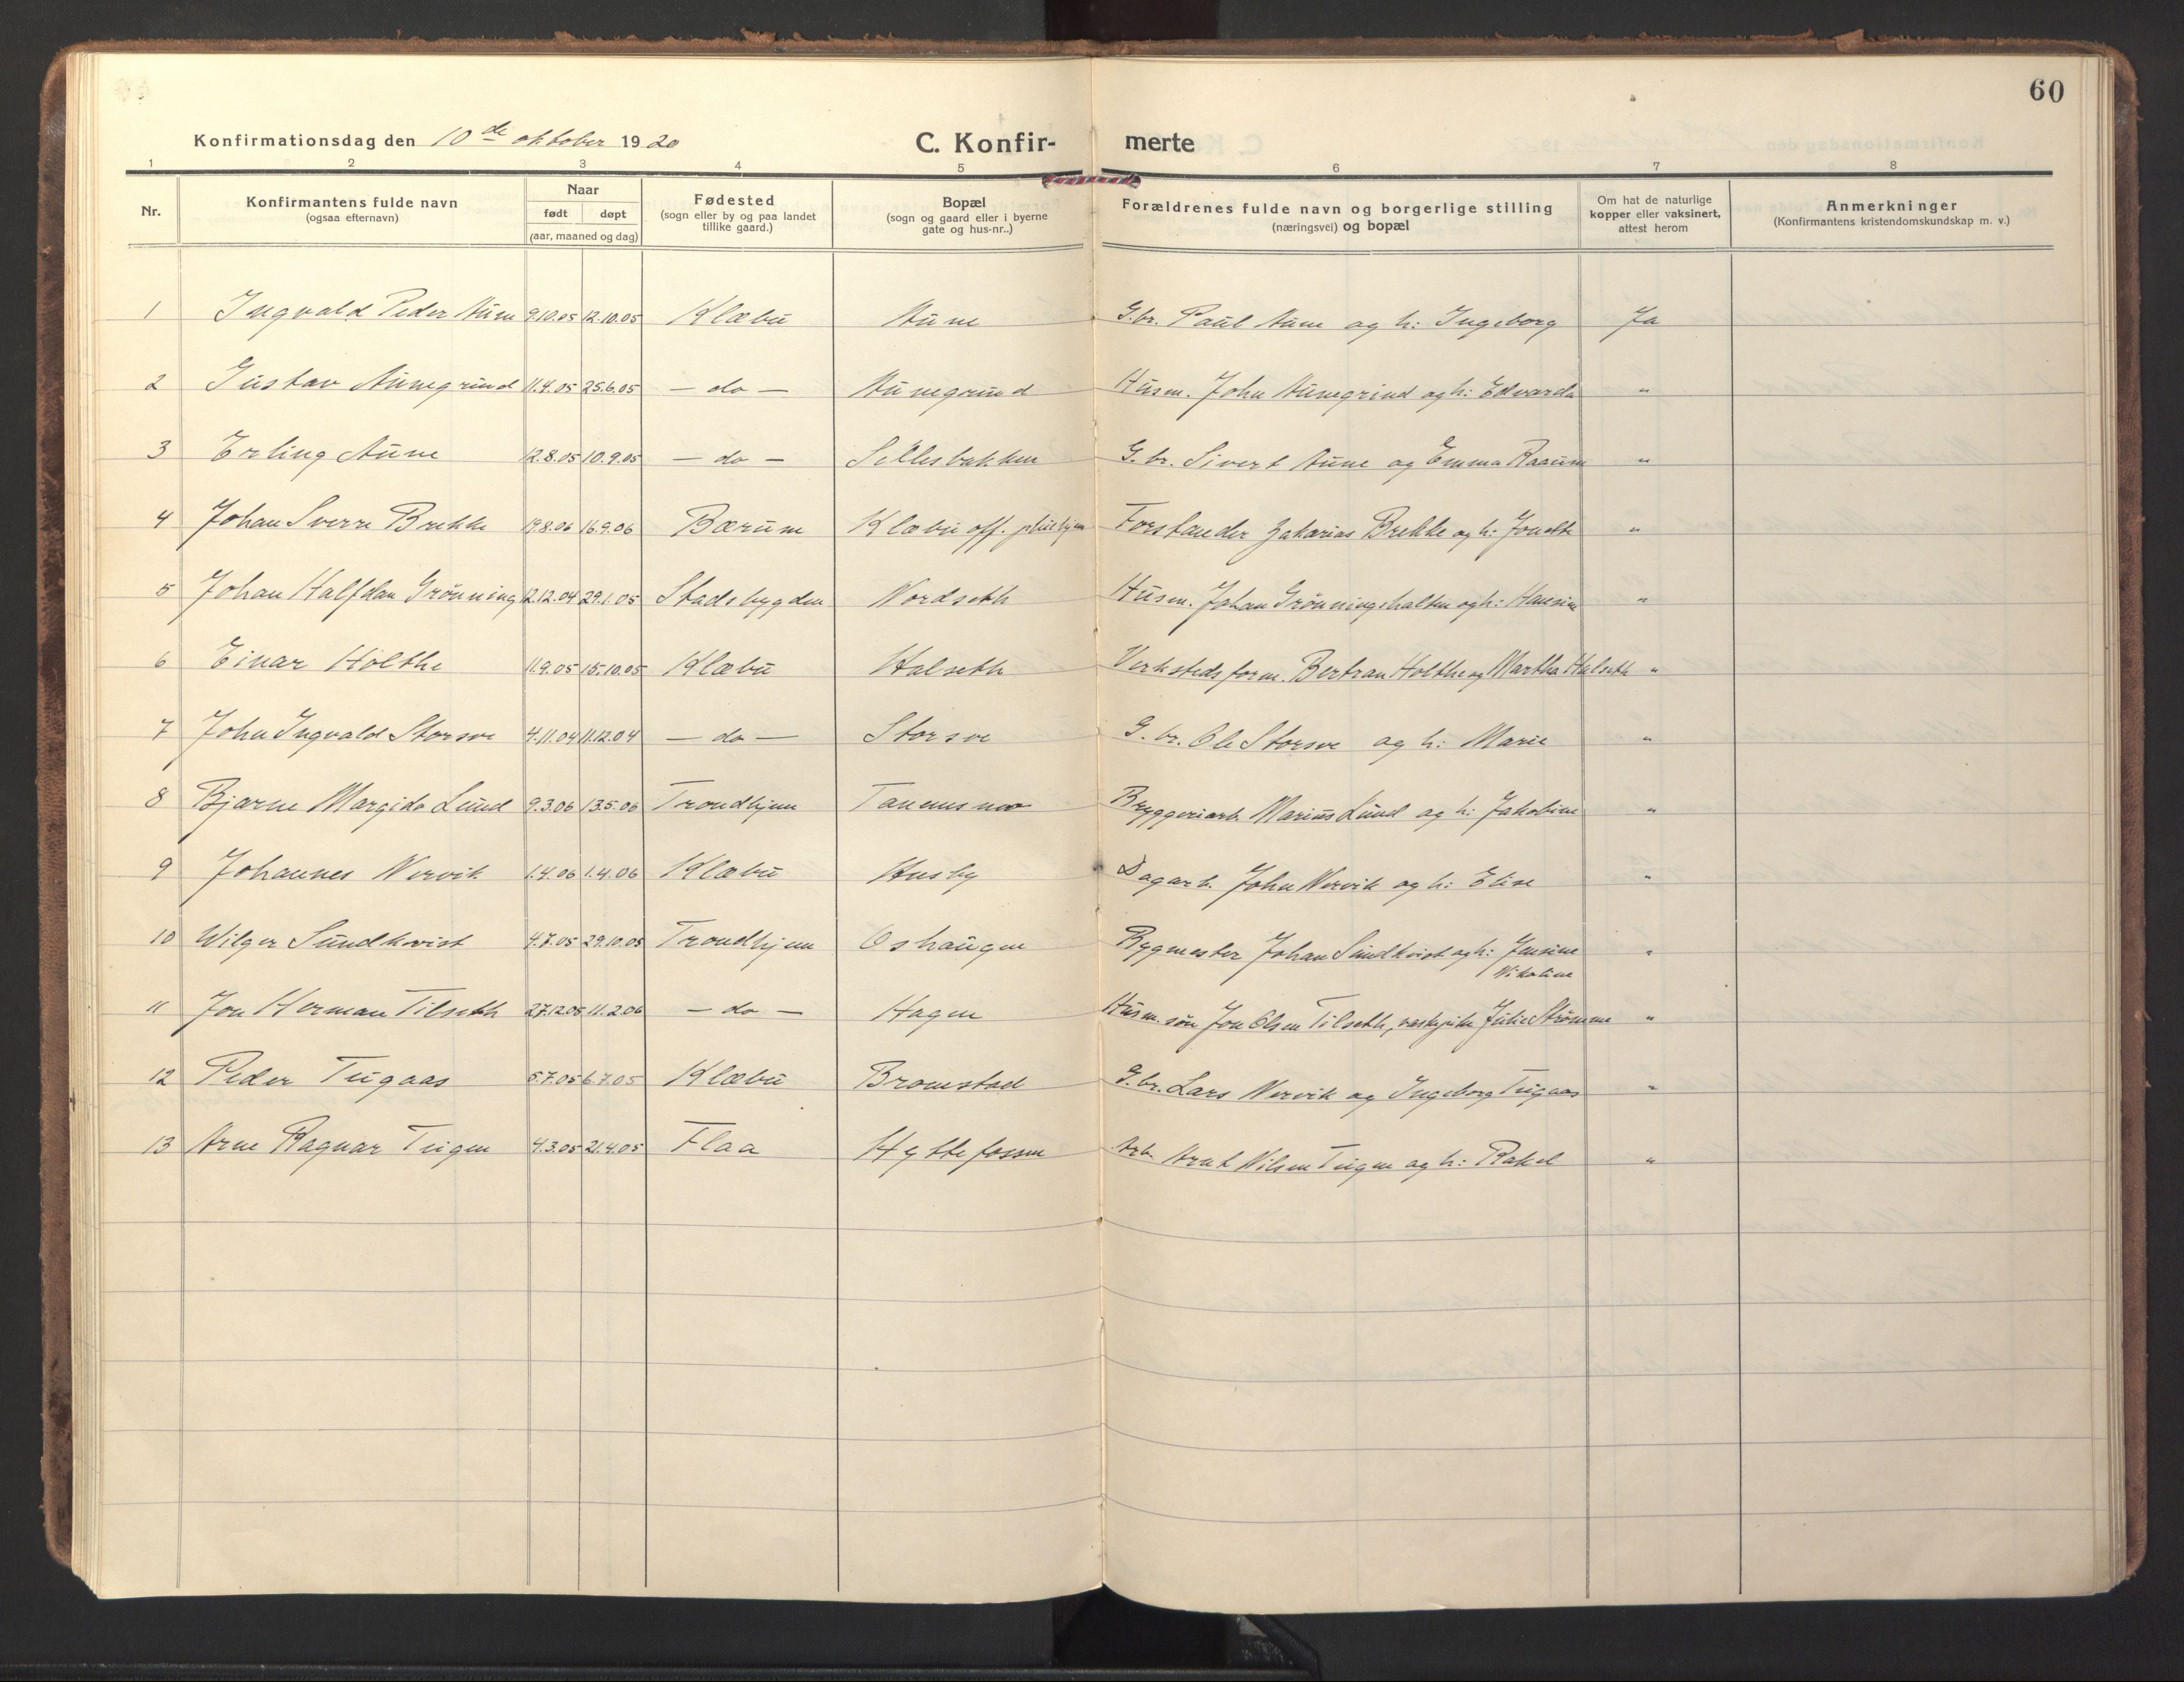 60
Konfirmationsdag den 10de oktober 1920 C. Konfir- merte
1 2 3 4 5 6 7 8
Nr. Konfirmantens fulde navn (ogsaa efternavn) Naar født døpt (aar, maaned og dag) Fødested (sogn eller by og paa landet tillike gaard.) Bopæl (sogn og gaard eller i byerne gate og hus-nr..) Forældrenes fulde navn og borgerlige stilling (næringsvei) og bopæl Om hat de naturlige kopper eller vaksinert, attest herom Anmerkninger (Konfirmantens kristendomskundskap m. v.)
1 Ingvald Peder Aune 9.10.05 12.10.05 Klæbu Aune G.br. Paul Aune og h: Ingeborg Ja
2 Gustav Aunegrind 11.4.05 25.6.05 - do - Aunegrind Husm. John Aunegrind og h: Edvarda "
3 Erling Aune 12.8.05 10.9.05 - do - Sellesbakken G.br. Sivert Aune og Emma Raaum "
4 Johan Sverre Brekke 19.8.06 16.9.06 Bærum Klæbu off. pleiehjem Forstander Zakarias Brekke og h: Jonette "
5 Johan Halfdan Grønning 2.12.04 29.1.05 Stadsbygden Nordseth Husm. Johan Grønningshalten og h: Hansine "
6 Einar Holthe 11.9.05 15.10.05 Klæbu Halseth Verkstedsform. Bertran Holthe og Martha Halseth "
7 John Ingvald Storsve 4.11.04 11.12.04 - do - Storsve G.br. Ole Storsve og h: Marie "
8 Bjarne Margido Lund 9.3.06 13.5.06 Trondhjem Tanemsmo Bryggeriarb. Marius Lund og h: Jakobine "
9 Johannes Nervik 1.4.06 1.4.06 Klæbu Husby Dagarb. John Nervik og h: Elise "
10 Wilger Sundkvist 4.7.05 29.10.05 Trondhjem Oshaugen Bygmester Johan Sundkvist og h: Jensine "
Nikoline
11 Jon Herman Tilseth 27.12.05 11.2.06 - do - Hagen Husm.søn Jon Olsen Tilseth, vaskepike Julie Strømme "
12 Peder Tugaas 5.7.05 6.7.05 Klæbu Bromstad G.br. Lars Nervik og Ingeborg Tugaas "
13 Arne Ragnar Teigen 4.3.05 21.4.05 Flaa Hyttefossen Arb. Arnt Nilsen Teigen og h: Rakel "